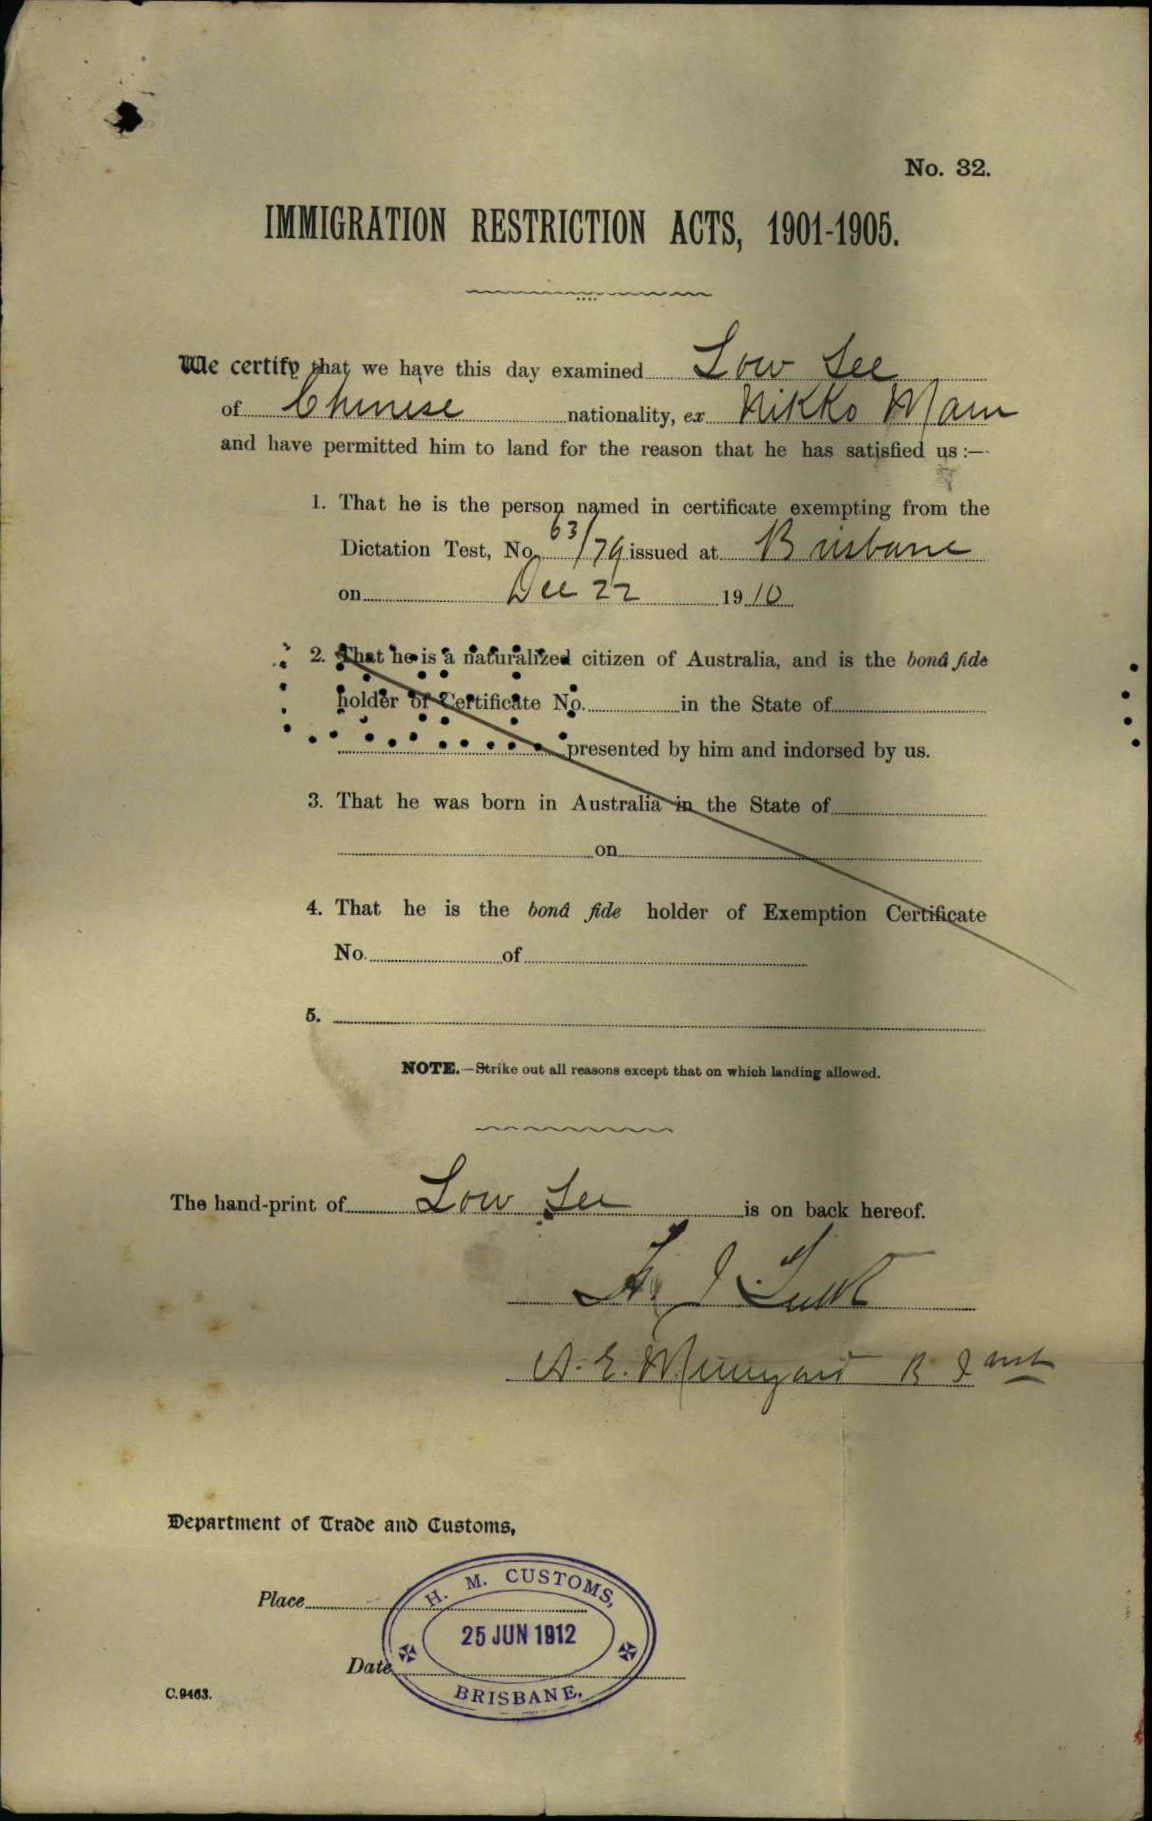 No. 32.
IMMIGRATION RESTRICTION ACTS, 1901-1905.
We certify that we have this day examined Low See
of Chinese nationality, ex Nikko Maru
and have permitted him to land for the reason that he has satisfied us :—
1. That he is the person named in certificate exempting from the
Dictation Test, No. 63/79 issued at Brisbane
on Dec 22 1910
2. That he is a naturalized citizen of Australia, and is the bonâ fide
holder of Certificate No. in the State of
presented by him and indorsed by us.
3. That he was born in Australia in the State of
on
4. That he is the bonâ fide holder of Exemption Certificate
No. of
5.
NOTE.—Strike out all reasons except that on which landing allowed.
The hand-print of Low See is on back hereof.
A. E.
Department of Trade and Customs,
Place
H. M. CUSTOMS,
25 JUN 1912
BRISBANE.
Date
C.9463.